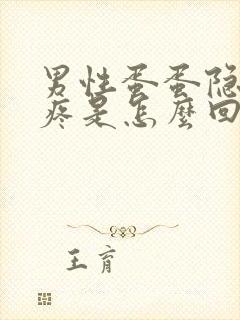 男性蛋蛋隐
疼是怎麼回
王育